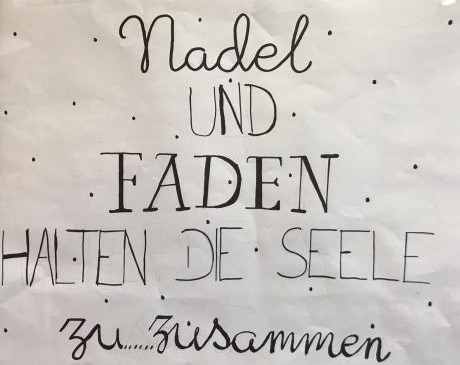 Nadel
UND
FADEN
HALTEN DIE SEELE
zu......zusammen